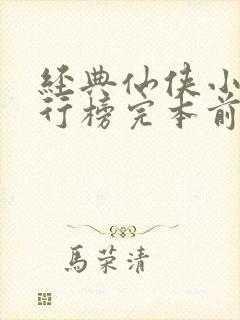 经典仙侠小
行榜完本前
馬荣清